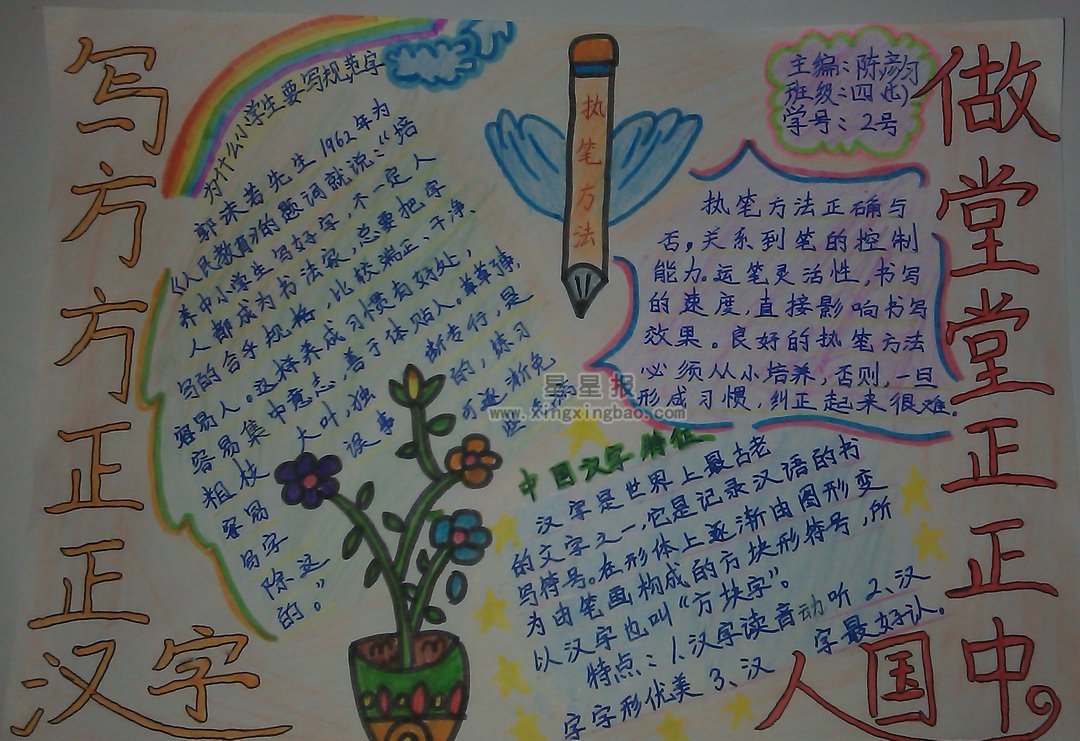 写方方正正汉字
做堂堂正正中国人
为什么小学生要写规范字
郭沫若先生1962年为
《人民教育》的题词就说:“培
养中小学生写好字,不一定人
人都成为书法家,总要把字
写的合乎规格,比较端正、干净、
容易人。这样养成习惯有好处,
容易集中意志,善于体贴人。草草
粗枝大叶,独断专行,是
容易误事的,练习
写字可逐渐免
除这些
的。”
执笔方法
主编:陈彦匀
班级:四(七)
学号:2号
执笔方法正确与
否,关系到笔的控制
能力。运笔灵活性,书写
的速度,直接影响书写
效果。良好的执笔方法
必须从小培养,否则,一旦
形成习惯,纠正起来很难。
星星报
www.xingxingbao.com
中国汉字特征
汉字是世界上最古老
的文字之一,它是记录汉语的书
写符号。在形体上逐渐由图形变
为由笔画构成的方块形符号,所
以汉字也叫“方块字”。
特点:1、汉字读音动听 2、汉
字字形优美 3、汉字最好认.